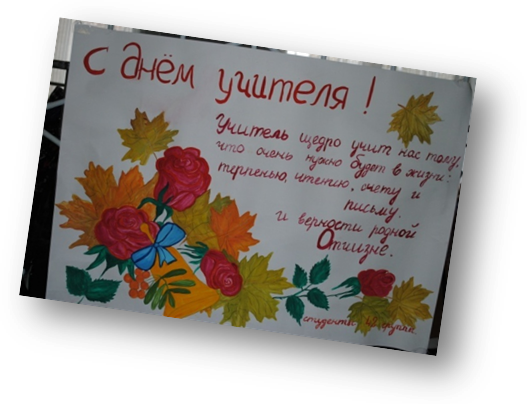 С днём учителя!
Учитель щедро учит нас тому,
что очень нужно будет в жизни:
терпенью, чтению, счету и
письму.
и верности родной
Отчизне.
студенты группы